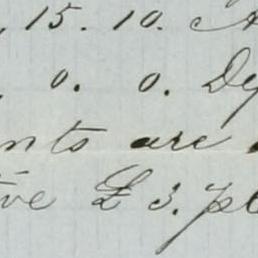 15. 10.
0. 0. De
nts are
tive £ 3. pe